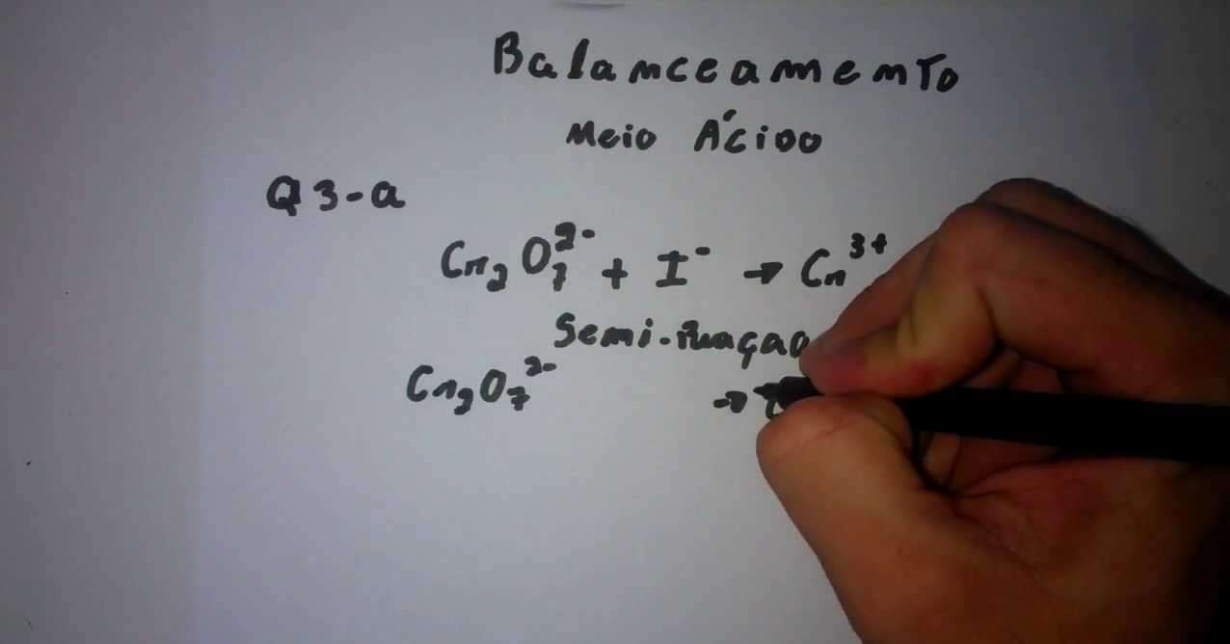 Balanceamento
Meio Ácido
Q3-a
Cr₂O₇²⁻ + I⁻ → Cr³⁺
Semi-reação
Cr₂O₇²⁻ →